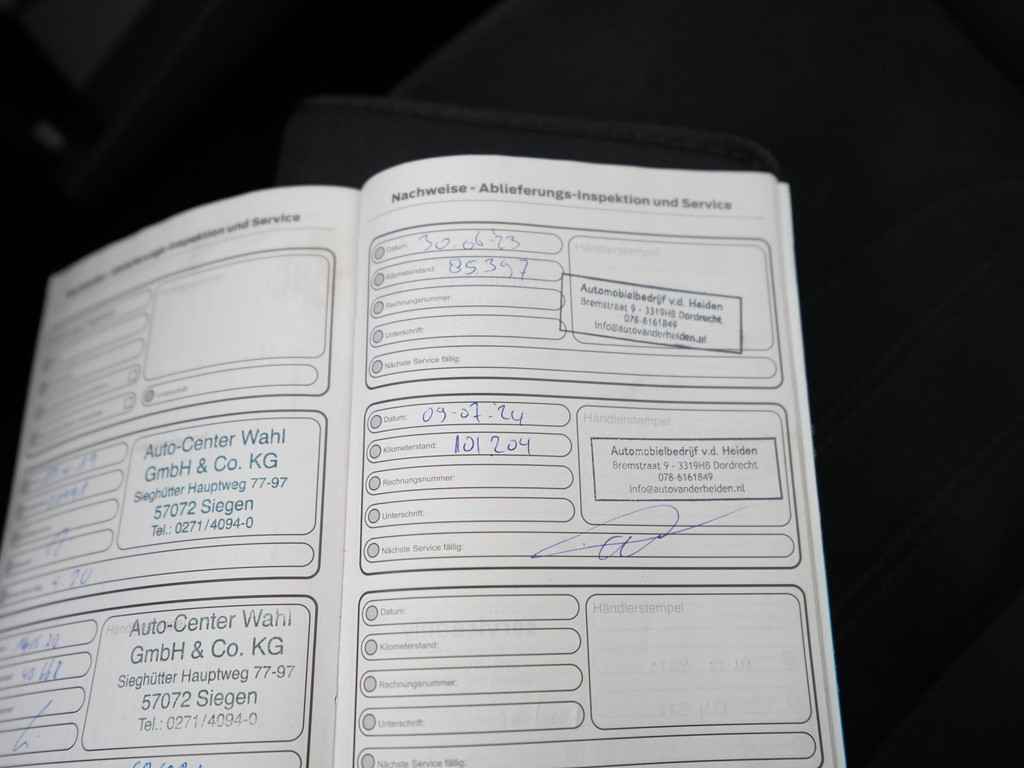 Nachweise - Ablieferungs-Inspektion und Service
Auto-Center Wahl
GmbH & Co. KG
Sieghütter Hauptweg 77-97
57072 Siegen
Tel.: 0271/4094-0
Auto-Center Wahl
GmbH & Co. KG
Sieghütter Hauptweg 77-97
57072 Siegen
Tel.: 0271/4094-0
Nachweise - Ablieferungs-Inspektion und Service
Datum: 30.06.'23
Händlerstempel
Kilometerstand: 85.397
Rechnungsnummer:
Unterschrift:
Nächste Service fällig:
Automobielbedrijf v.d. Heiden
Bremstraat 9 - 3319HB Dordrecht
078-6161849
info@autovanderheiden.nl
Datum: 09-07-'24
Händlerstempel
Kilometerstand: 101.204
Rechnungsnummer:
Unterschrift:
Nächste Service fällig:
Automobielbedrijf v.d. Heiden
Bremstraat 9 - 3319HB Dordrecht
078-6161849
info@autovanderheiden.nl
Datum:
Händlerstempel
Kilometerstand:
Rechnungsnummer:
Unterschrift:
Nächste Service fällig: